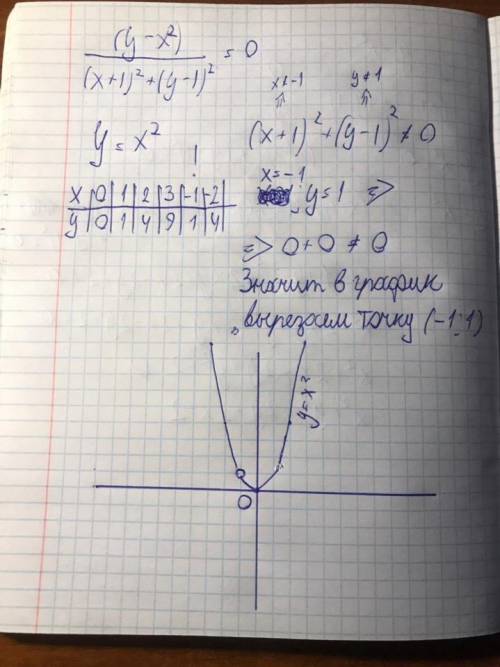 (y - x²) / ((x+1)² + (y-1)²) = 0
x≠-1 y≠1
⇑ ⇑
y = x²
(x+1)² + (y-1)² ≠ 0
!
x | 0 | 1 | 2 | 3 | -1 | -2
y | 0 | 1 | 4 | 9 | 1 | 4
x=-1
; y=1 =>
=> 0+0 ≠ 0
Значит в график
вырезаем точку (-1;1)
y=x²
0